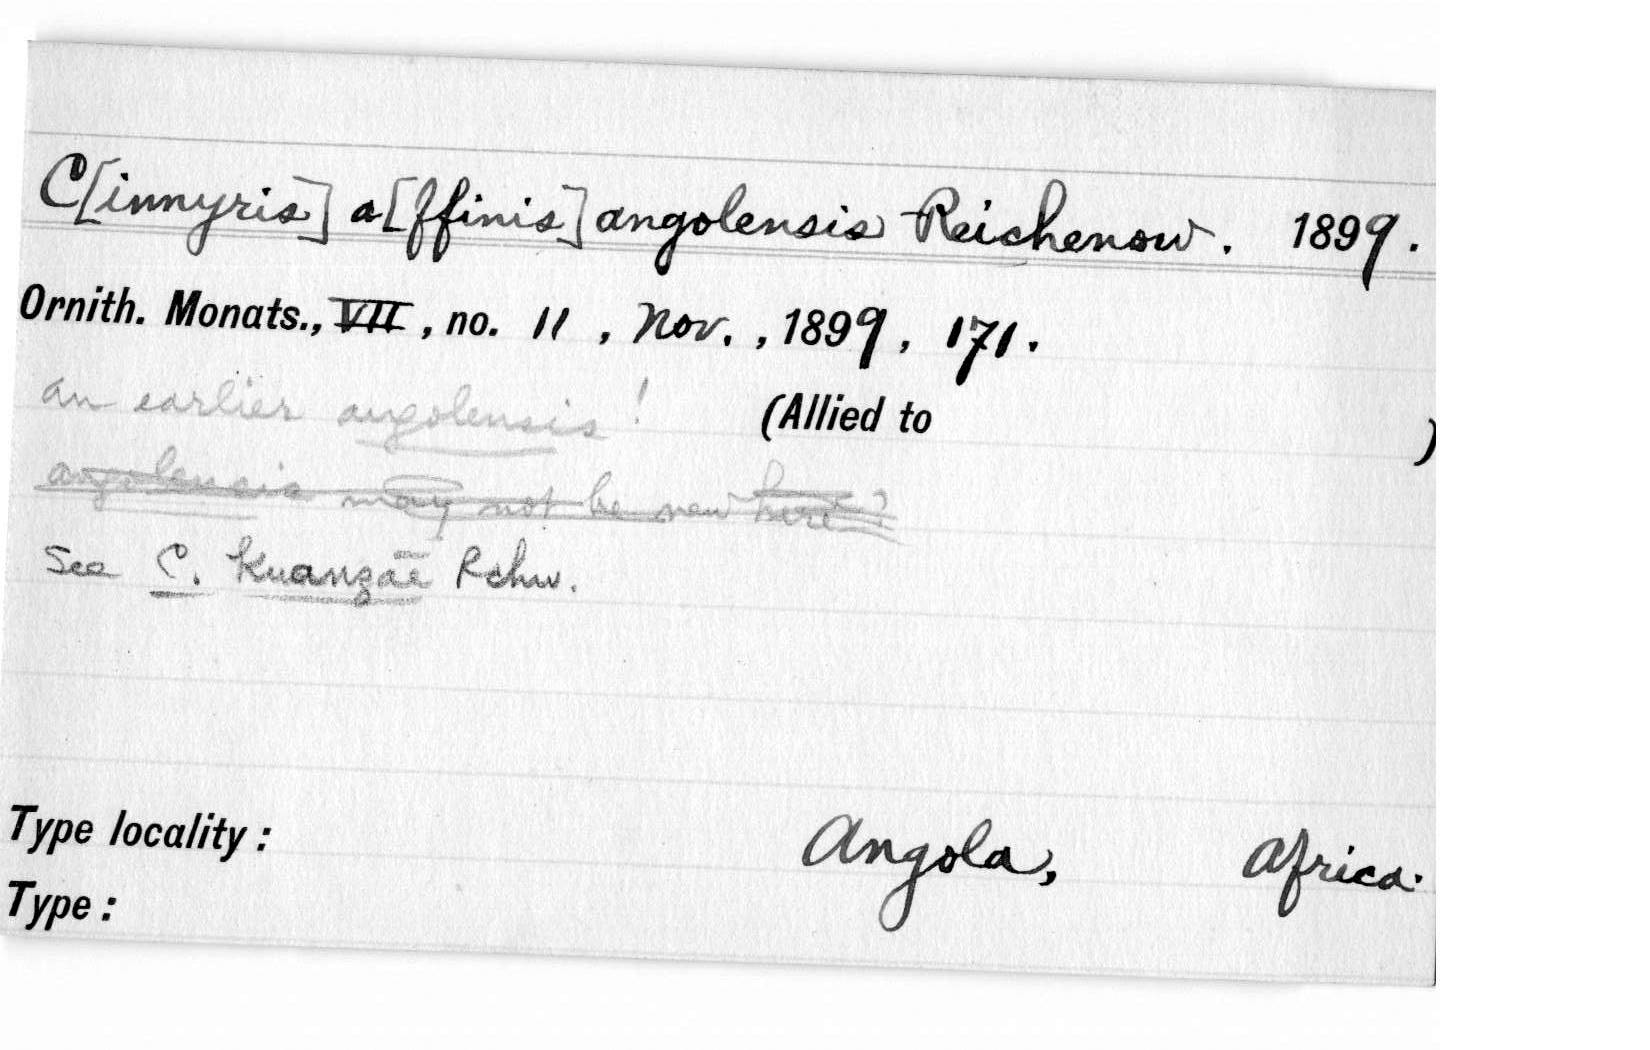 C[innyris] a[ffinis] angolensis Reichenow. 1899.
Ornith. Monats., VII, no. 11, Nov., 1899, 171.
an earlier angolensis! (Allied to )
angolensis may not be new here?
See C. Kuanzae Rchw.
Type locality: Angola, Africa.
Type: